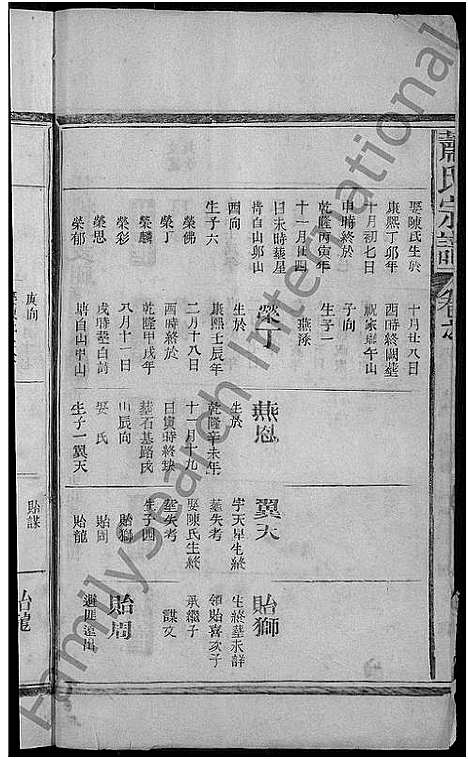 蕭氏宗譜
卷之
娶陳氏生於
康熙丁卯年
十月初七日
申時終於
乾隆丙寅年
十一月廿四
日未時墓星
塘白山卯山
酉向
生子六
榮佛
榮丁
榮麟
榮彩
榮思
榮郁
十月廿八日
酉時終關墓
子向
生子一
燕恩
榮丁
生於
康熙壬辰年
二月十八日
酉時終於
乾隆甲戌年
八月十二日
戌時墓白
塘白山
燕恩
生於
乾隆辛未年
十一月十九
日寅時終缺
墓石基路氏
山辰向
娶氏
生子一翼天
翼天
字天昇生終
墓失考
娶陳氏生終
墓失考
生子四
貽獅
貽周
貽龍
貽獅
生終墓未詳
領貽喜次子
承繼子
謀文
貽周
避匪
庚向
貽謀
貽龍
FamilySearch International